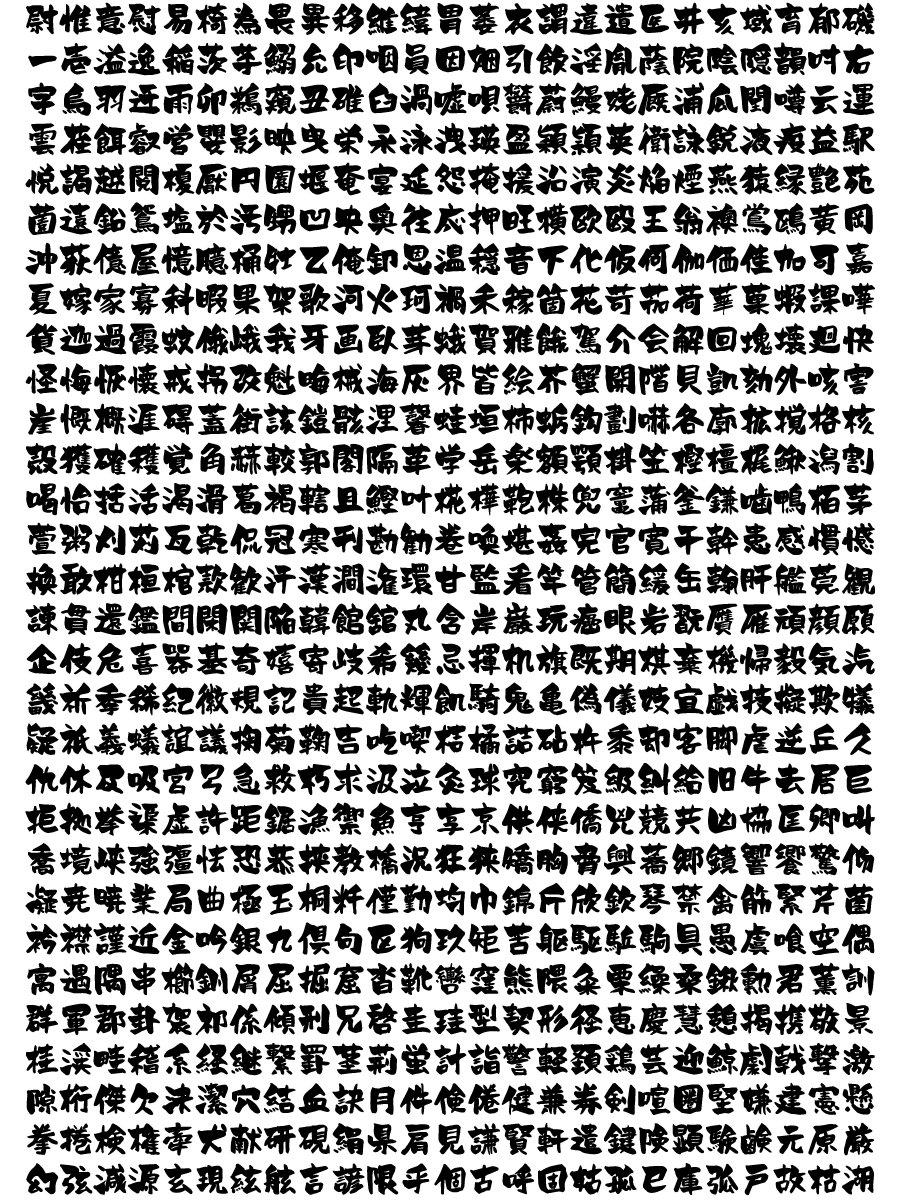 尉惟意慰易椅為畏異移維緯胃萎衣謂違遺医井亥域育郁磯
一壱溢逸稲茨芋鰯允印咽員因姻引飲淫胤蔭院陰隠韻吋右
宇烏羽迂雨卯鵜窺丑碓臼渦嘘唄欝蔚鰻姥厩浦瓜閏噂云運
雲荏餌叡営嬰影映曳栄永泳洩瑛盈穎頴英衛詠鋭液疫益駅
悦謁越閲榎厭円園堰奄宴延怨掩援沿演炎焔煙燕猿縁艶苑
薗遠鉛鴛塩於汚甥凹央奥往応押旺横欧殴王翁襖鴬鴎黄岡
沖荻億屋憶臆桶牡乙俺卸恩温穏音下化仮何伽価佳加可嘉
夏嫁家寡科暇果架歌河火珂禍禾稼箇花苛茄荷華菓蝦課嘩
貨迦過霞蚊俄峨我牙画臥芽蛾賀雅餓駕介会解回塊壊廻快
怪悔恢懐戒拐改魁晦械海灰界皆絵芥蟹開階貝凱劾外咳害
崖慨概涯碍蓋街該鎧骸浬馨蛙垣柿蛎鈎劃嚇各廓拡撹格核
殻獲確穫覚角赫較郭閣隔革学岳楽額顎掛笠樫橿梶鰍潟割
喝恰括活渇滑葛褐轄且鰹叶椛樺鞄株兜竃蒲釜鎌噛鴨栢茅
萱粥刈苅瓦乾侃冠寒刊勘勧巻喚堪姦完官寛干幹患感慣憾
換敢柑桓棺款歓汗漢澗潅環甘監看竿管簡緩缶翰肝艦莞観
諌貫還鑑間閑関陥韓館舘丸含岸巌玩癌眼岩翫贋雁頑顔願
企伎危喜器基奇嬉寄岐希幾忌揮机旗既期棋棄機帰毅気汽
畿祈季稀紀徽規記貴起軌輝飢騎鬼亀偽儀妓宜戯技擬欺犠
疑祇義蟻誼議掬菊鞠吉吃喫桔橘詰砧杵黍却客脚虐逆丘久
仇休及吸宮弓急救朽求汲泣灸球究窮笈級糾給旧牛去居巨
拒拠挙渠虚許距鋸漁禦魚亨享京供侠僑兇競共凶協匡卿叫
喬境峡強彊怯恐恭挟教橋況狂狭矯胸脅興蕎郷鏡響饗驚仰
凝尭暁業局曲極玉桐粁僅勤均巾錦斤欣欽琴禁禽筋緊芹菌
衿襟謹近金吟銀九倶句区狗玖矩苦躯駆駈駒具愚虞喰空偶
寓遇隅串櫛釧屑屈掘窟沓靴轡窪熊隈粂栗繰桑鍬勲君薫訓
群軍郡卦袈祁係傾刑兄啓圭珪型契形径恵慶慧憩掲携敬景
桂渓畦稽系経継繋罫茎荊蛍計詣警軽頚鶏芸迎鯨劇戟撃激
隙桁傑欠決潔穴結血訣月件倹倦健兼券剣喧圏堅嫌建憲懸
拳捲検権牽犬献研硯絹県肩見謙賢軒遣鍵険顕験鹸元原厳
幻弦減源玄現絃舷言諺限乎個古呼固姑孤己庫弧戸故枯湖